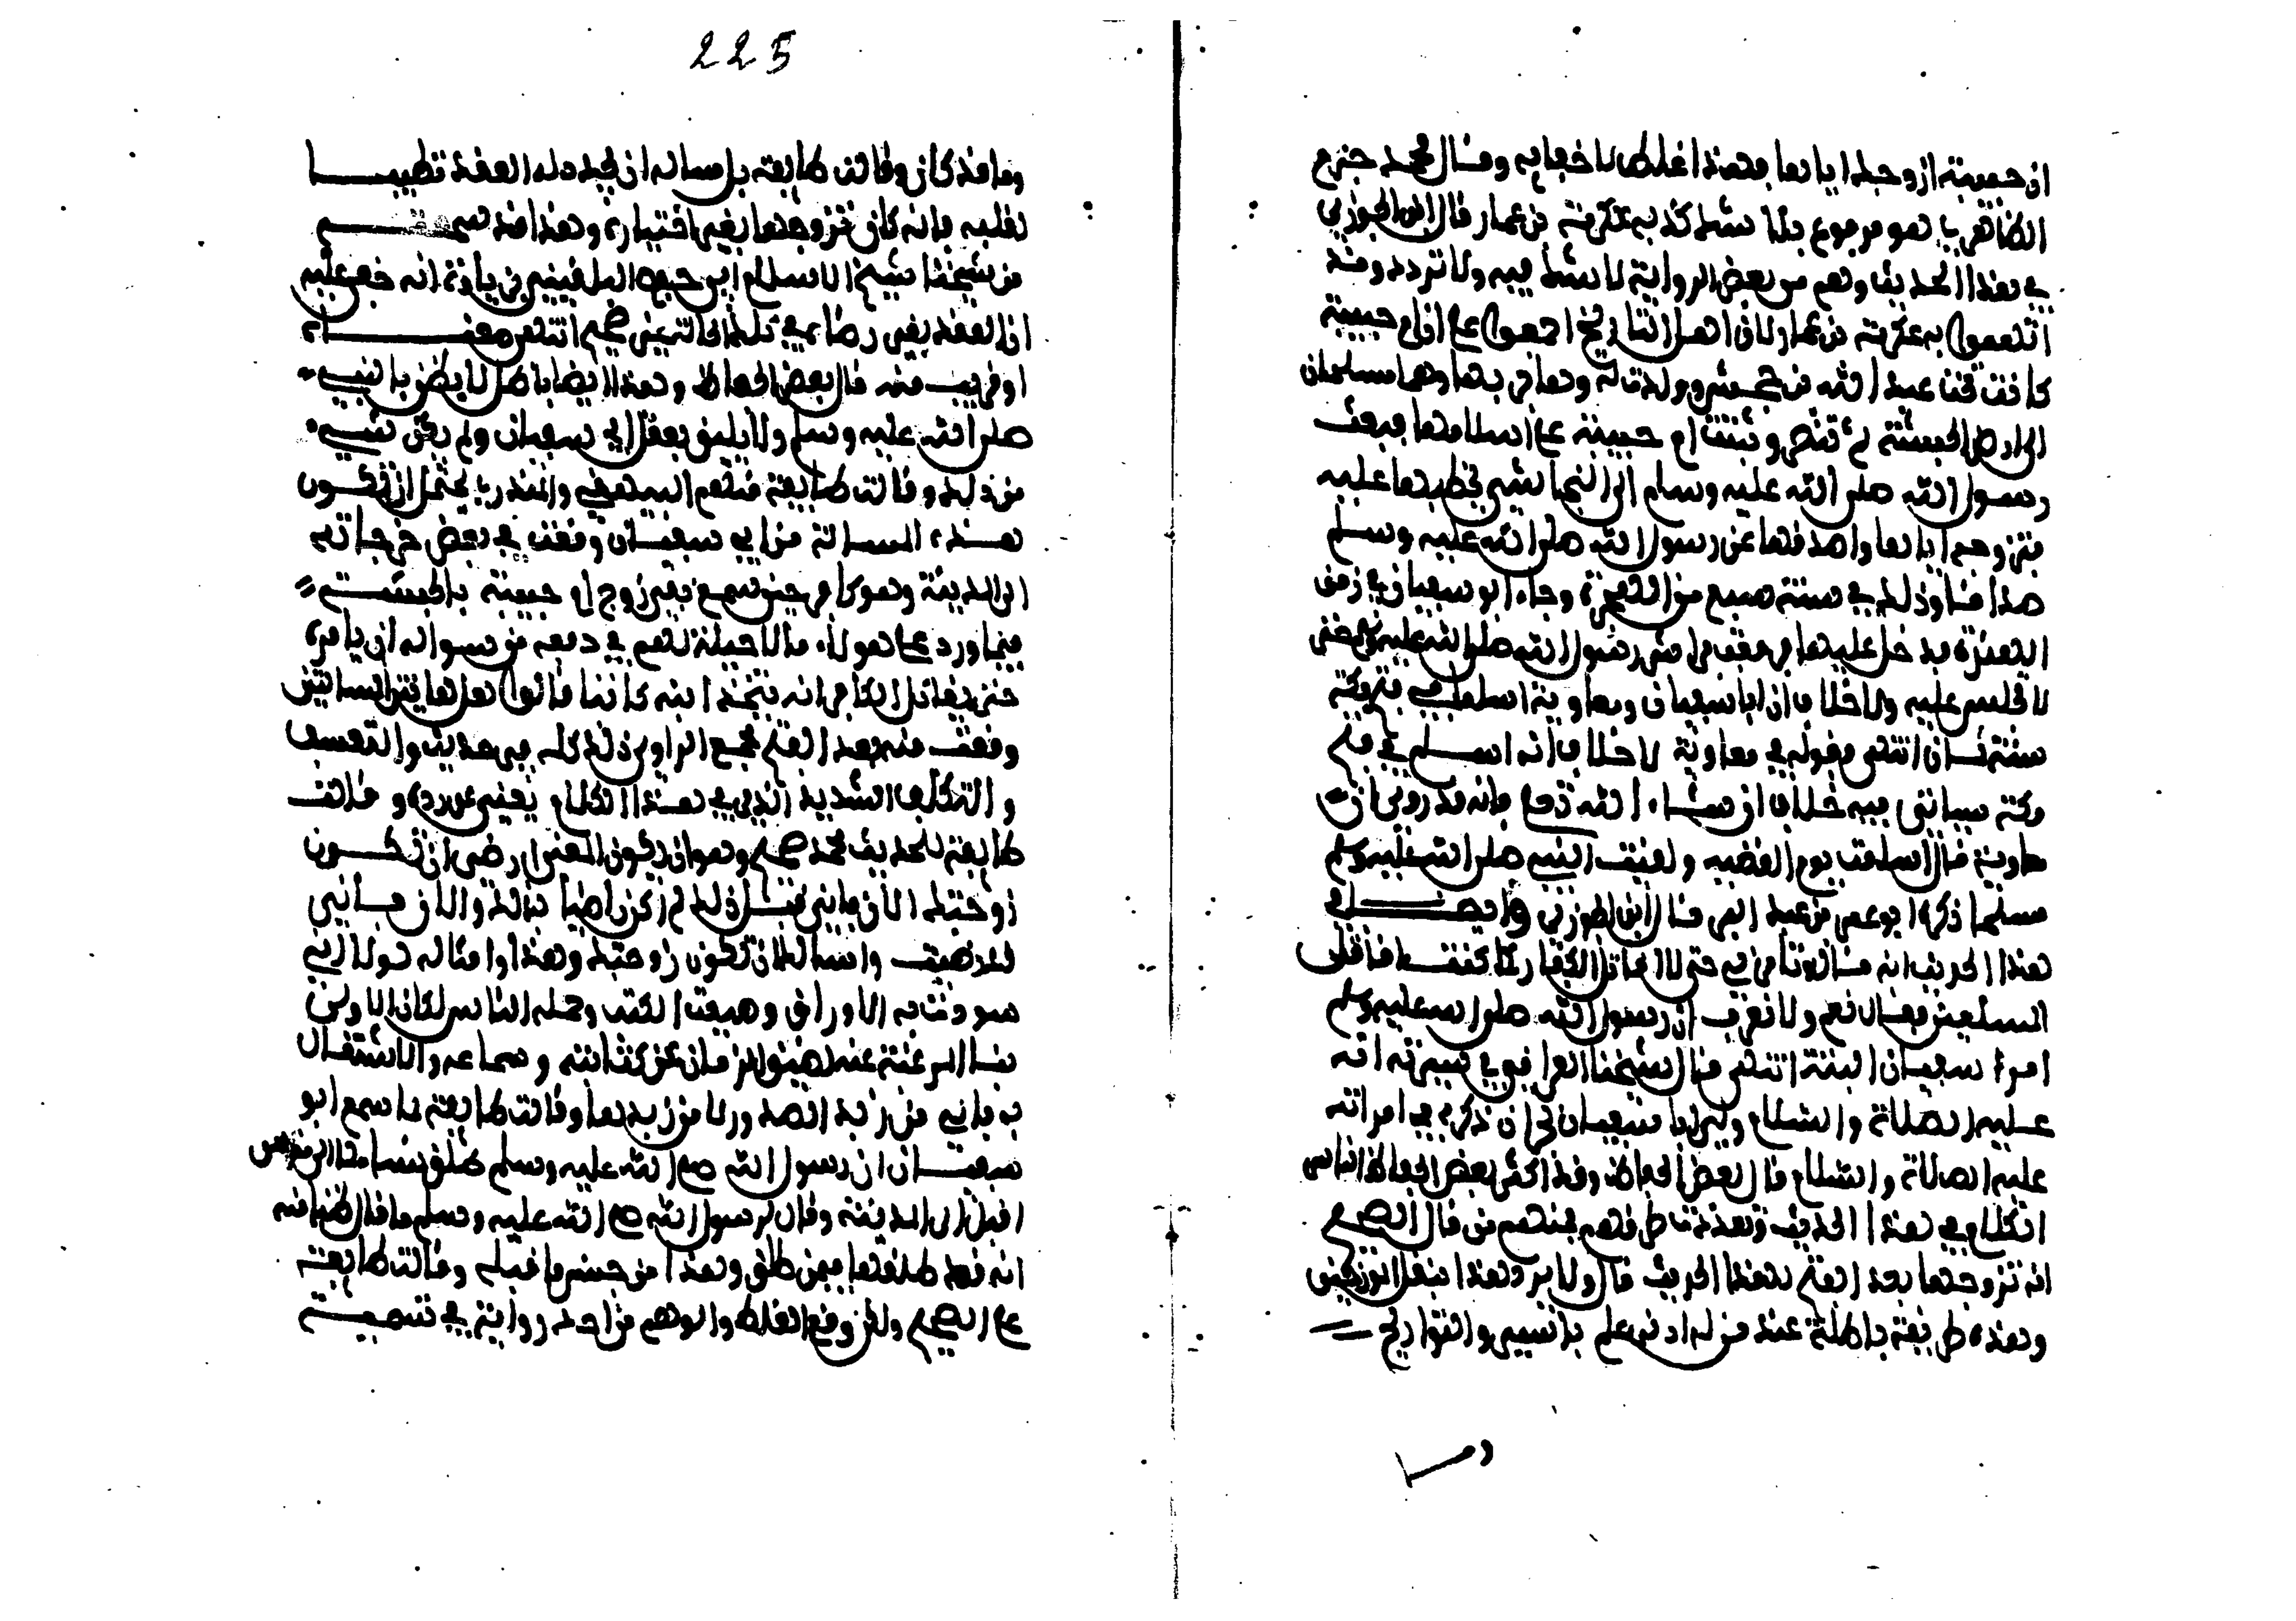 ام حبيبة ازوجك اياها فهذا غلط لا خفا به وقال محمد حزم
الظاهري هو موضوع بلا شك كذبه عكرمة بن عمار قال ابن الجوزي
في هذا الحديث وهم من بعض الرواية لا شك فيه ولا تردد وقد
اتهموا به عكرمة بن عمار لان اهل التاريخ اجمعوا على ان ام حبيبة
كانت تحت عبد الله بن جحش وولدت له وهاجر بها وهما مسلمان
الى ارض الحبشة ثم تنصر وثبتت ام حبيبة على اسلامها فبعث
رسول الله صلى الله عليه وسلم الى النجاشي يخطبها عليه
فتزوجه اياها واصدقها عن رسول الله صلى الله عليه وسلم
صداقا وذلك في سنة سبع من الهجرة وجاء ابو سفيان في زمن
الهدنة فدخل عليها فرفعت فراش رسول الله صلى الله عليه وسلم حتى
لا يجلس عليه ولا خلاف ان ابا سفيان ومعاوية اسلما في فتح مكة
سنة ثمان انتهى وقوله في معاوية لا خلاف انه اسلم في فتح
مكة سياتي فيه خلاف ان شاء الله تعالى فانه قد روي ان
معاوية قال اسلمت يوم القضية ولقيت النبي صلى الله عليه وسلم
مسلما ذكره ابو عمر بن عبد البر قال ابن الجوزي وايضا في
هذا الحديث انه قال وتامرني حتى اقاتل الكفار كما كنت اقاتل
المسلمين فقال نعم ولا نعرف ان رسول الله صلى الله عليه وسلم
امر ابا سفيان البتة انتهى قال شيخنا العراقي في سيرته انه
عليه الصلاة والسلام ولى ابا سفيان نجران ذكره في امرائه
عليه الصلاة والسلام قال بعض الحفاظ وقد اكثر بعض الحفاظ الناس
الكلام في هذا الحديث وتعددت طرقهم فمنهم من قال الصحيح
انه تزوجها بعد الفتح لهذا الحديث قال ولا يرد هذا بنقل المورخين
وهذه طريقة باطلة عند من له ادنى علم بالسير والتواريخ
225
وما قد كان وقالت طايفة بل ساله ان يجدد له العقد تطييبا
لقلبه فانه كان تزوجها بغير اختياره وهذا قد سمعته
من شيخنا شيخ الاسلام ابي حفص البلقيني بزيادة انه خفي عليه
ان العقد بغير رضاه في تلك الحالة صحيح انتهى معناه
او قريب منه قال بعض الحفاظ وهذا ايضا باطل لا يظن بالنبي
صلى الله عليه وسلم ولا يليق بعقل ابي سفيان ولم يكن شيء
من ذلك وقالت طايفة منهم البيهقي والمنذري يحتمل ان تكون
هذه المسالة من ابي سفيان وقعت في بعض خرجاته
الى المدينة وهو كافر حين سمع نعي زوج ام حبيبة بالحبشة
فيما ورد على هولاء مالا حيلة لهم في دفعه من سواله ان يامره
حتى يقاتل الكفار وانه يتخذ ابنه كاتبا قالوا لعل هاتين المسالتين
وقعت منه بعد الفتح فجمع الراوي ذلك كله في حديث والتعسف
والتكلف الشديد الذي في هذا الكلام يغني عن رده وقالت
طايفة للحديث محمل صحيح وهو ان يكون المعنى ارضى ان تكون
زوجتك الان فاني قبل ذلك لم اكن راضيا بذلك والان فاني
قد رضيت واسالك ان تكون زوجتك وهذا وامثاله لولا انه
سودت به الاوراق وصنفت الكتب وحمله الناس لكان الاولى
بنا الرغبة عنه لضيق الزمان عن كتابته وسماعه والاشتغال
به فانه من زبد الصدور لا من زبدها وقالت طايفة لما سمع ابو
سفيان ان رسول الله صلى الله عليه وسلم طلق نساءه لما الى منهن
اقبل الى المدينة وقال لرسول الله صلى الله عليه وسلم ما قال ظنا منه
انه قد طلقها فيمن طلق وهذا من جنس ما قبله وقالت طايفة
على الصحيح ولكن وقع الغلط والوهم من احد رواته في تسمية